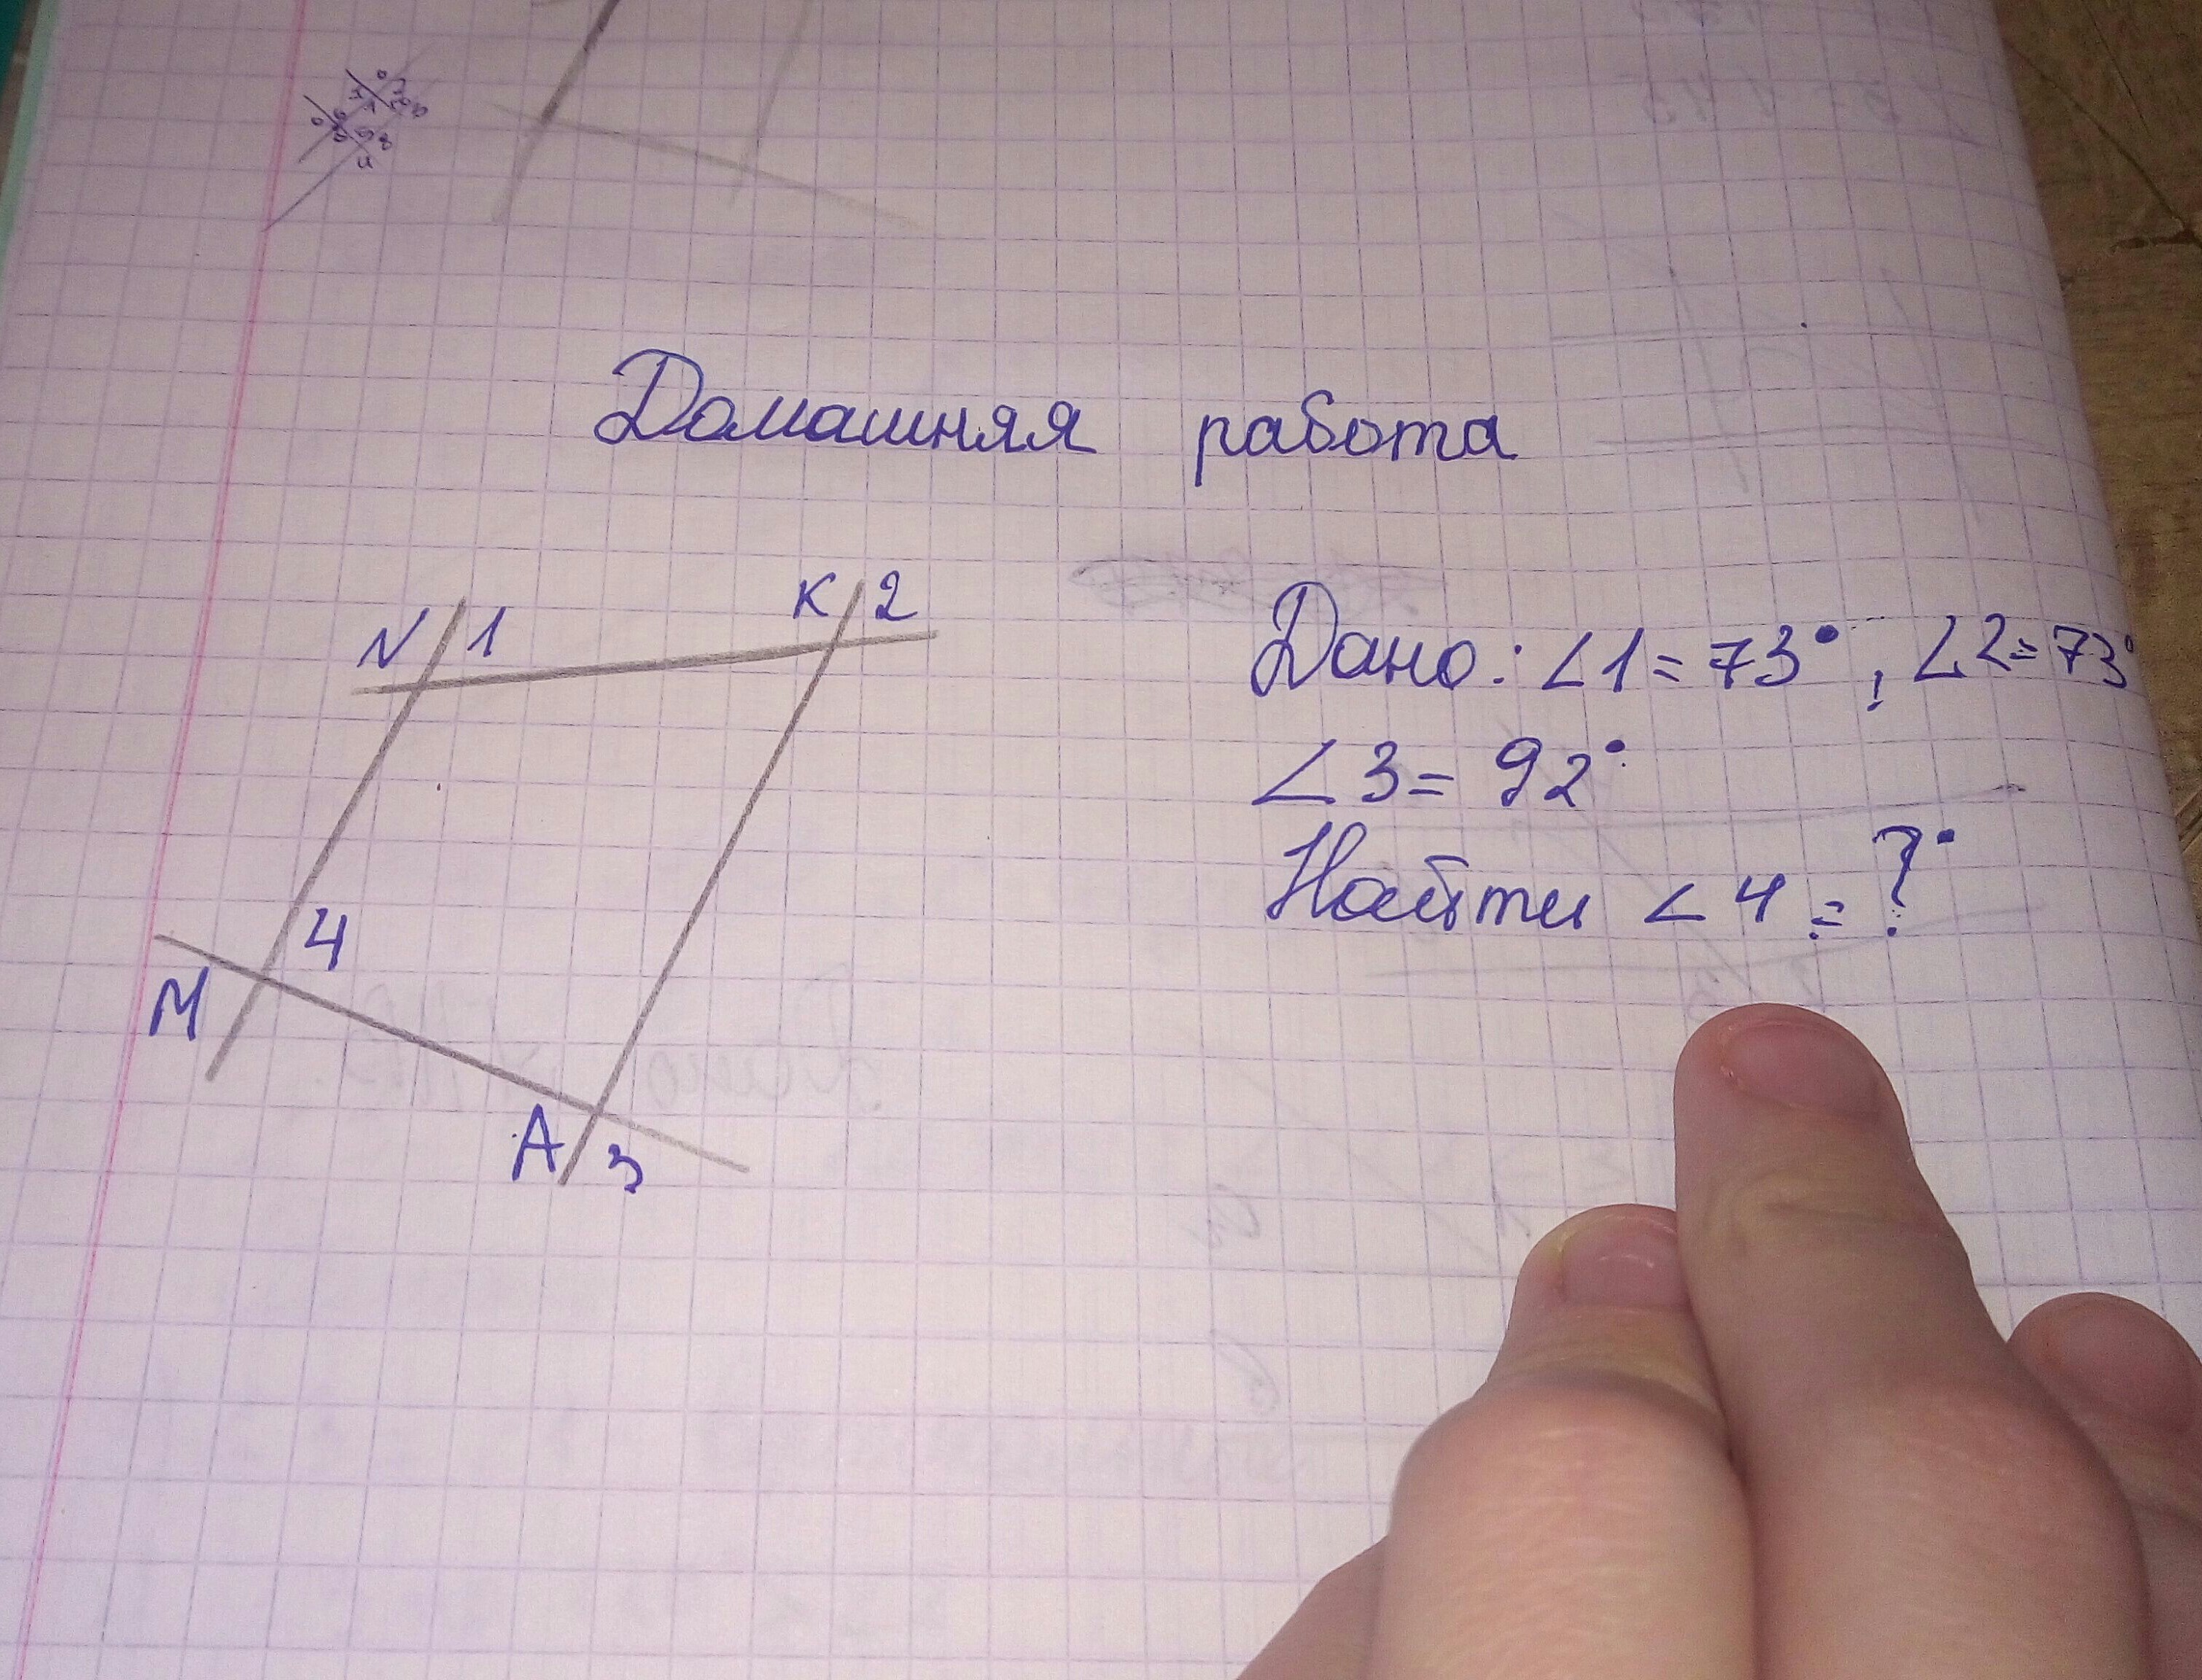 Домашняя работа
N 1 K 2
4
M
A 3
Дано: ∠1 = 73°, ∠2 = 73°
∠3 = 92°
Найти ∠4 = ?°